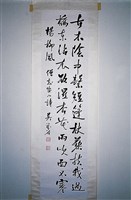 古木陰中繫短篷杖藜扶我過
橋東沾衣欲濕杏花雨吹面不寒
楊柳風